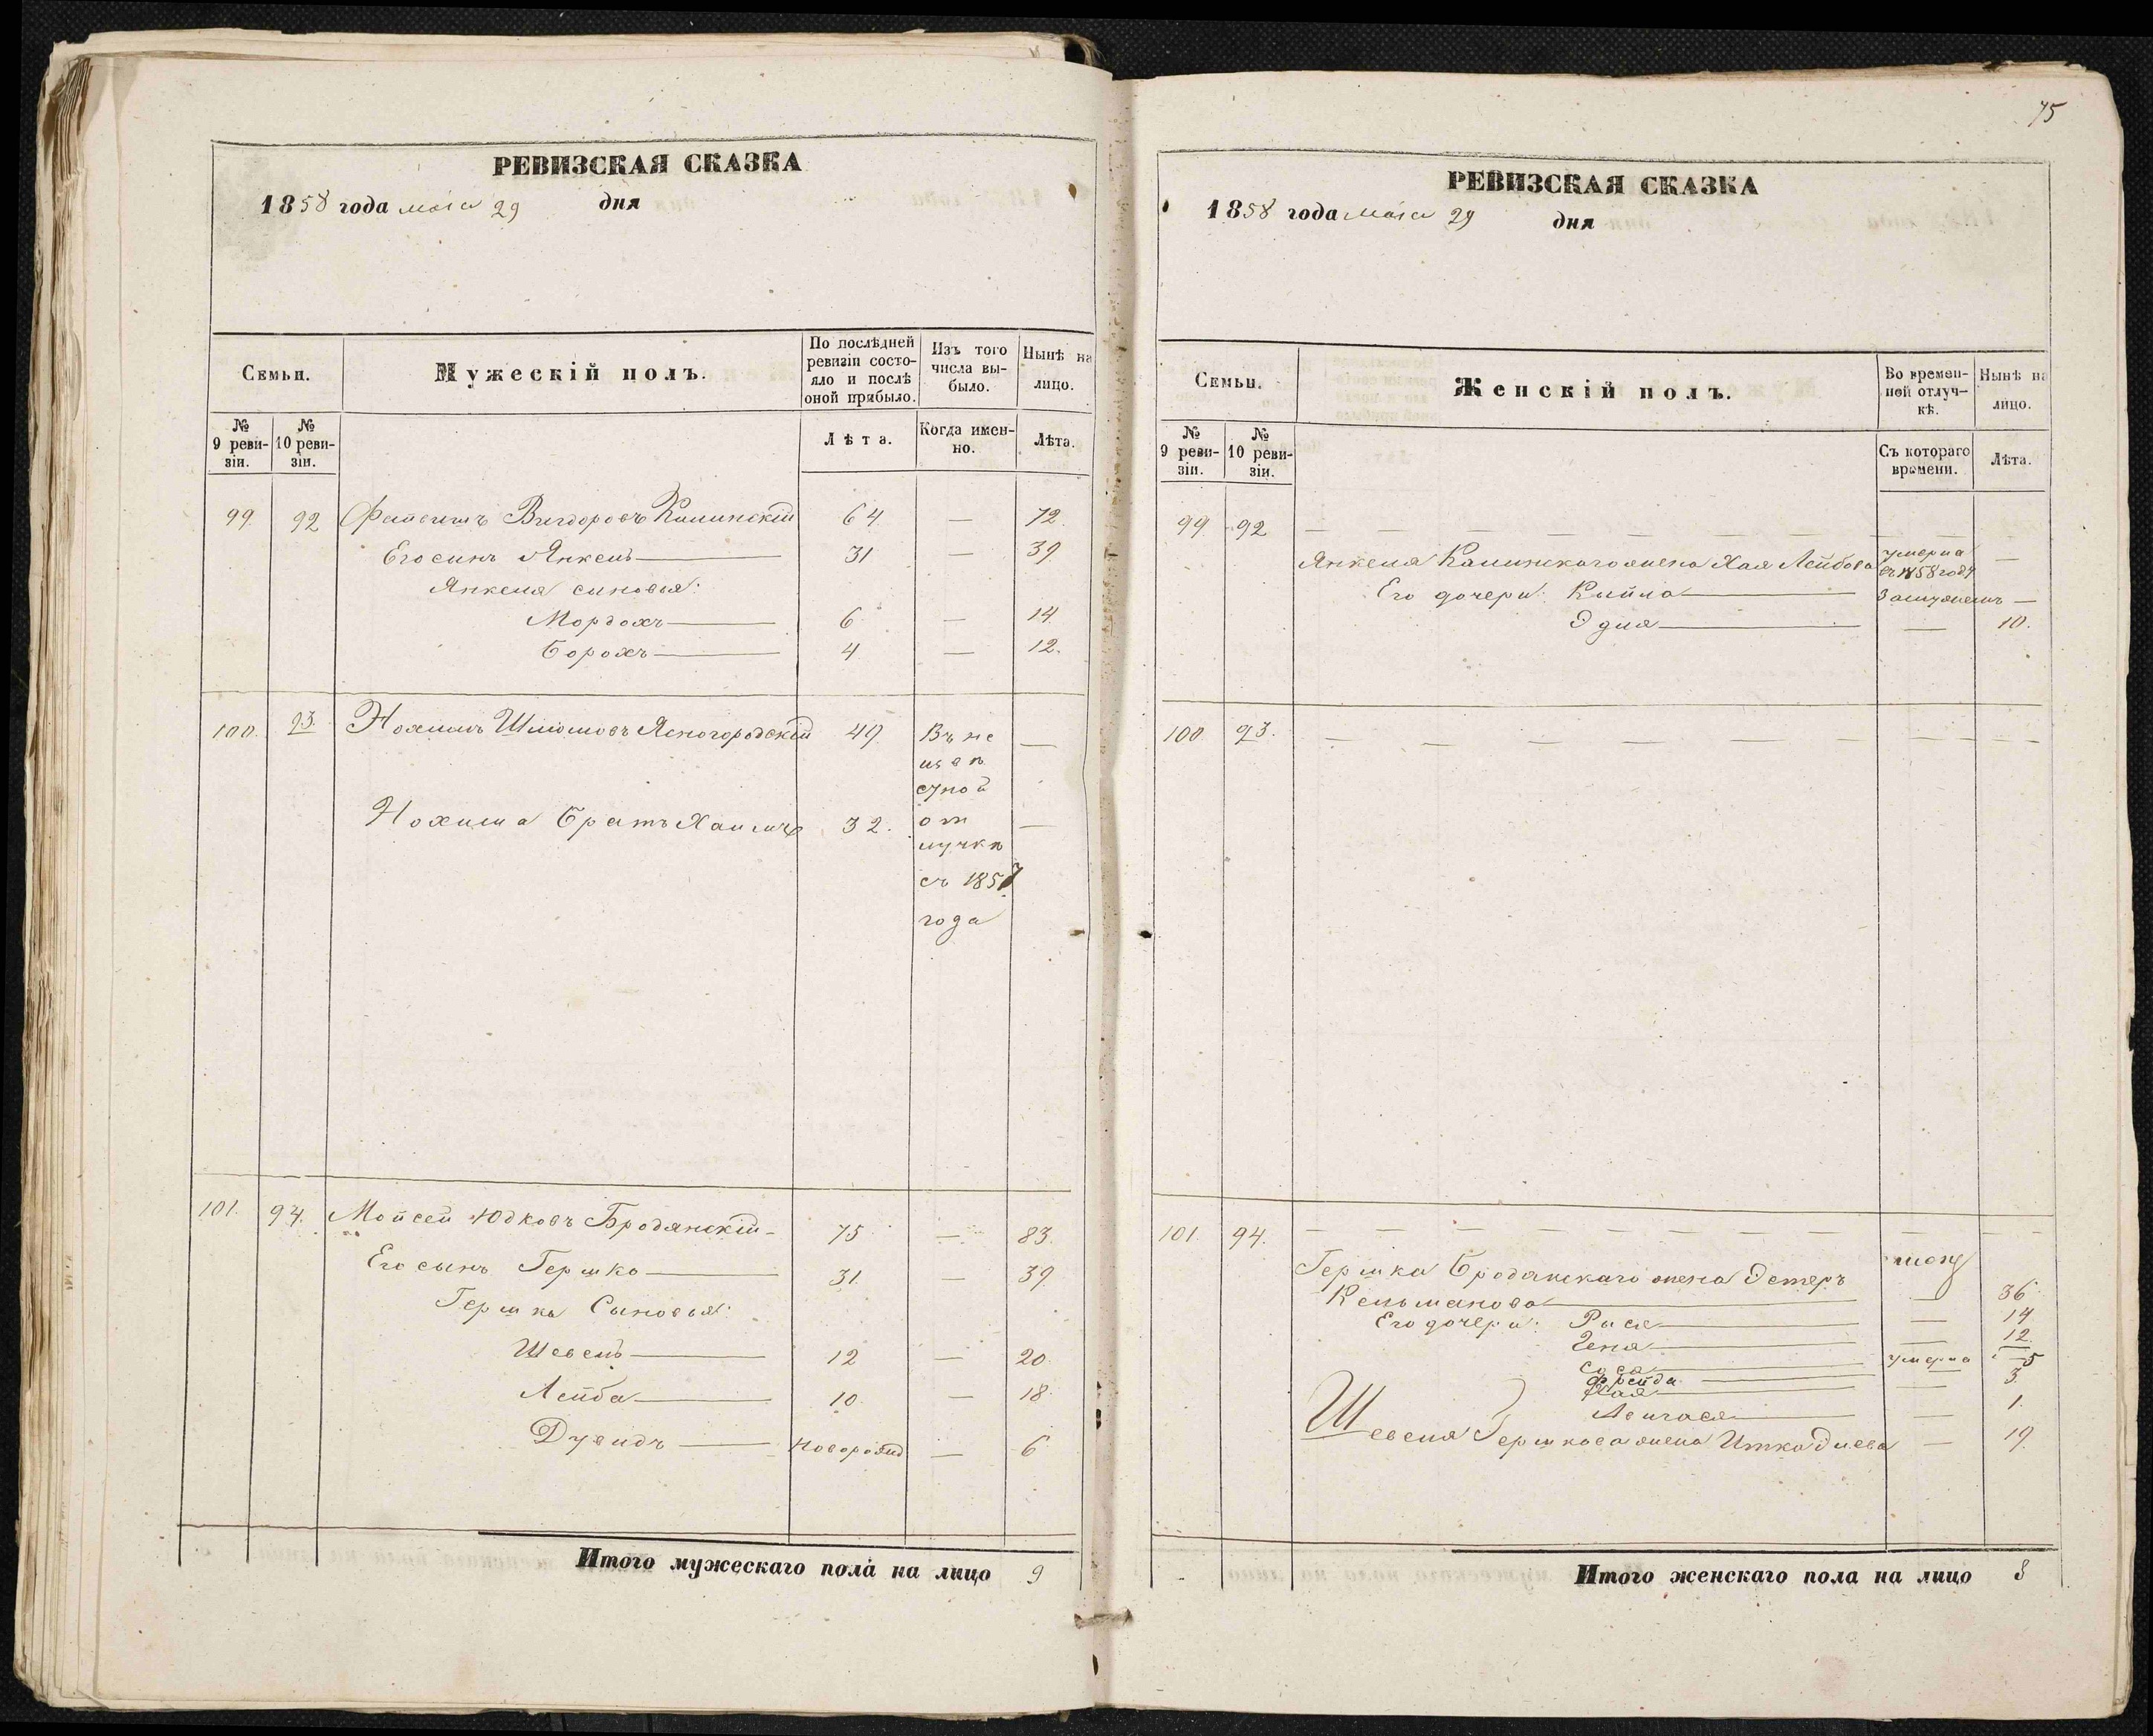 РЕВИЗСКАЯ СКАЗКА
1858 года маія 29 дня
Семьи.
Мужескій полъ.
По послѣдней ревизіи состо-
яло и послѣ
оной прибыло.
Изъ того
числа вы-
было.
Нынѣ на
лицо.
№
9 реви-
зіи.
№
10 реви-
зіи.
Лѣта.
Когда имен-
но.
Лѣта.
99. 92 Вигдоровъ 64 — 72.
Его сынъ Янкель 31 — 39.
Янкеля сыновья:
Мордохъ 6 — 14.
Борохъ 4 — 12.
100. 93. Нохимъ Шліомовъ Ясногородскій 49 —
Въ не
извѣ
стной
Нохима братъ Хаимъ 32. —
от
лучкѣ
съ 1857
года
101. 94. Мойсей Юдковъ Бродянскій 75 — 83.
Его сынъ Гершко 31. — 39
Гершка Сыновья:
Шевель 12 — 20.
Лейба 10 — 18
Дувидъ новорожд — 6
Итого мужескаго пола на лицо 9
75
РЕВИЗСКАЯ СКАЗКА
1858 года маія 29 дня
Семьи.
Женскій полъ.
Во времен-
ной отлуч-
кѣ.
Нынѣ на
лицо.
№
9 реви-
зіи.
№
10 реви-
зіи.
Съ котораго
времени.
Лѣта.
99 92 — — — — —
Янкеля жена Хая Лейбова умерла
въ 1858 году —
Его дочери: Кейла Замужемъ —
Эдля — 10.
100 93. — — — — —
101. 94. — — — — —
Гершка Бродянскаго жена Эстеръ
Кельманова — 36
Его дочери: Рися — 14
Геня — 12.
Сося умерла —
Фрейда 5
Хая — 3.
— 1.
Шевеля Гершкова жена Итка — 19.
Итого женскаго пола на лицо 8